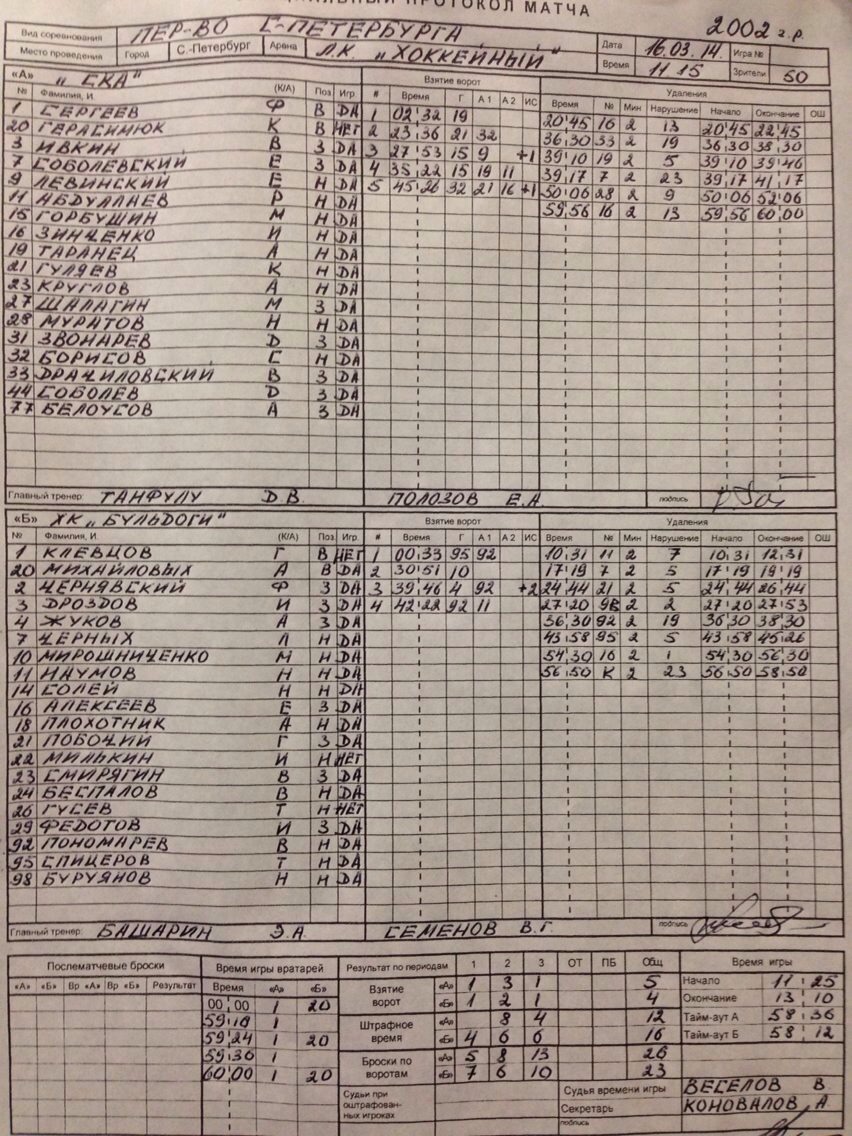 ПРОТОКОЛ МАТЧА
Вид соревнования ПЕР-ВО С-ПЕТЕРБУРГА 2002 г.р.
Место проведения Город С.-Петербург Арена Л.К. „ХОККЕЙНЫЙ" Дата 16.03.14 Игра №
Время 11 15 Зрители 50
«А» „СКА" Взятие ворот Удаления
№ Фамилия, И (К/А) Поз Игр. # Время Г А1 А2 ИС Время № Мин Нарушение Начало Окончание ОШ
1 СЕРГЕЕВ Ф В ДА 1 02 32 19 20 45 16 2 13 20 45 22 45
20 ГЕРАСИМЮК К В НЕТ 2 23 36 21 32 36 30 33 2 19 36 30 38 30
3 ИВКИН В З ДА 3 27 53 15 9 +1 39 10 19 2 5 39 10 39 46
7 СОБОЛЕВСКИЙ Е З ДА 4 35 22 15 19 11 39 17 7 2 23 39 17 41 17
9 ЛЕВИНСКИЙ Е Н ДА 5 45 26 32 21 16 +1 50 06 28 2 9 50 06 52 06
11 АБДУЛАЕВ Р Н ДА 59 56 16 2 13 59 56 60 00
15 ГОРБУШИН М Н ДА
16 ЗИНЧЕНКО И Н ДА
19 ТАРАНЕЦ А Н ДА
21 ГУЛЯЕВ К Н ДА
23 КРУГЛОВ А Н ДА
27 ШАЛАГИН М З ДА
28 МУРАТОВ Н Н ДА
31 ЗВОНАРЕВ D З ДА
32 БОРИСОВ С Н ДА
33 ДРАЧИЛОВСКИЙ В З ДА
44 СОБОЛЕВ D З ДА
77 БЕЛОУСОВ А З ДА
Главный тренер: ТАНФУЛУ D.В. ПОЛОЗОВ Е.А. подпись
«Б» ХК „БУЛЬДОГИ" Взятие ворот Удаления
№ Фамилия, И. (К/А) Поз Игр. # Время Г А1 А2 ИС Время № Мин Нарушение Начало Окончание ОШ
1 КЛЕВЦОВ Г В НЕТ 1 00 33 95 92 10 31 11 2 7 10 31 12 31
20 МИХАЙЛОВЫХ А В ДА 2 30 51 10 17 19 7 2 5 17 19 19 19
2 ЧЕРНЯВСКИЙ Ф З ДА 3 39 46 4 92 +2 24 44 21 2 5 24 44 26 44
3 ДРОЗДОВ И З ДА 4 42 22 92 11 27 20 98 2 2 27 20 27 53
4 ЖУКОВ А З ДА 36 30 92 2 19 36 30 38 30
7 ЧЕРНЫХ Л Н ДА 43 58 95 2 5 43 58 45 26
10 МИРОШНИЧЕНКО М Н ДА 54 30 16 2 1 54 30 56 30
11 НАУМОВ Н Н ДА 56 50 К 2 23 56 50 58 50
14 СОЛЕЙ Н Н ДА
16 АЛЕКСЕЕВ Е З ДА
18 ПЛОХОТНИК А Н ДА
21 ПОБОЧИЙ Г З ДА
22 МИЛЬКИН И Н НЕТ
23 СМИРЯГИН В З ДА
24 БЕСПАЛОВ В Н ДА
26 ГУСЕВ Т Н НЕТ
29 ФЕДОТОВ И З ДА
92 ПОНОМАРЕВ В Н ДА
95 СПИЦЕРОВ Т Н ДА
98 БУРУЯНОВ Н Н ДА
Главный тренер: БАШАРИН Э.А. СЕМЕНОВ В.Г. подпись
Послематчевые броски Время игры вратарей Результат по периодам 1 2 3 ОТ ПБ Общ Время игры
«А» «Б» Вр «А» Вр «Б» Результат Время «А» «Б» Взятие ворот «А» 1 3 1 5 Начало 11 25
00 00 1 20 «Б» 1 2 1 4 Окончание 13 10
59 10 1 Штрафное время «А» 8 4 12 Тайм-аут А 58 36
59 24 1 20 «Б» 4 6 6 16 Тайм-аут Б 58 12
59 30 1 Броски по воротам «А» 5 8 13 26
60 00 1 20 «Б» 7 6 10 23
Судьи при оштрафованных игроках Судья времени игры ВЕСЕЛОВ В
Секретарь КОНОВАЛОВ А
подпись